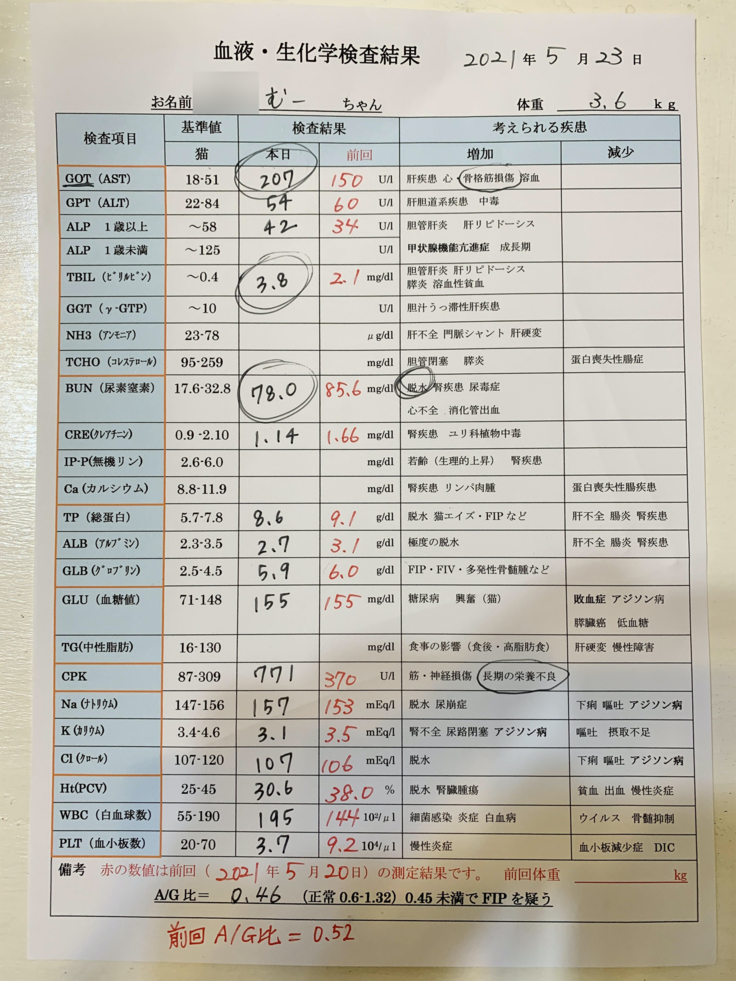 血液・生化学検査結果 2021年 5月 23日
お名前 むー ちゃん 体重 3.6 kg
検査項目 基準値 検査結果 考えられる疾患
猫 本日 前回 増加 減少
GOT (AST) 18-51 207 150 U/l 肝疾患 心・骨格筋損傷 溶血
GPT (ALT) 22-84 54 60 U/l 肝胆道系疾患 中毒
ALP 1歳以上 ～58 42 34 U/l 胆管肝炎 肝リピドーシス
ALP 1歳未満 ～125 U/l 甲状腺機能亢進症 成長期
TBIL (ﾋﾞﾘﾙﾋﾞﾝ) ～0.4 3.8 2.1 mg/dl 胆管肝炎 肝リピドーシス
膵炎 溶血性貧血
GGT (γ-GTP) ～10 U/l 胆汁うっ滞性肝疾患
NH3 (ｱﾝﾓﾆｱ) 23-78 μg/dl 肝不全 門脈シャント 肝硬変
TCHO (ｺﾚｽﾃﾛｰﾙ) 95-259 mg/dl 胆管閉塞 膵炎 蛋白喪失性腸症
BUN (尿素窒素) 17.6-32.8 78.0 85.6 mg/dl 脱水 腎疾患 尿毒症
心不全 消化管出血
CRE(ｸﾚｱﾁﾆﾝ) 0.9 -2.10 1.14 1.66 mg/dl 腎疾患 ユリ科植物中毒
IP-P(無機リン) 2.6-6.0 mg/dl 若齢（生理的上昇） 腎疾患
Ca (カルシウム) 8.8-11.9 mg/dl 腎疾患 リンパ肉腫 蛋白喪失性腸疾患
TP (総蛋白) 5.7-7.8 8.6 9.1 g/dl 脱水 猫エイズ・FIP など 肝不全 腸炎 腎疾患
ALB (ｱﾙﾌﾞﾐﾝ) 2.3-3.5 2.7 3.1 g/dl 極度の脱水 肝不全 腸炎 腎疾患
GLB (ｸﾞﾛﾌﾞﾘﾝ) 2.5-4.5 5.9 6.0 g/dl FIP・FIV・多発性骨髄腫など
GLU (血糖値) 71-148 155 155 mg/dl 糖尿病 興奮（猫） 敗血症 アジソン病
膵臓癌 低血糖
TG(中性脂肪) 16-130 mg/dl 食事の影響（食後・高脂肪食） 肝硬変 慢性障害
CPK 87-309 771 370 U/l 筋・神経損傷 長期の栄養不良
Na (ﾅﾄﾘｳﾑ) 147-156 157 153 mEq/l 脱水 尿崩症 下痢 嘔吐 アジソン病
K (ｶﾘｳﾑ) 3.4-4.6 3.1 3.5 mEq/l 腎不全 尿路閉塞 アジソン病 嘔吐 摂取不足
Cl (ｸﾛｰﾙ) 107-120 107 106 mEq/l 脱水 下痢 嘔吐 アジソン病
Ht(PCV) 25-45 30.6 38.0 % 脱水 腎臓腫瘍 貧血 出血 慢性炎症
WBC (白血球数) 55-190 195 144 10²/μl 細菌感染 炎症 白血病 ウイルス 骨髄抑制
PLT (血小板数) 20-70 3.7 9.2 10⁴/μl 慢性炎症 血小板減少症 DIC
備考 赤の数値は前回（2021年 5月 20日）の測定結果です。 前回体重 kg
A/G 比＝ 0.46 （正常 0.6-1.32）0.45 未満で FIP を疑う
前回 A/G比 = 0.52